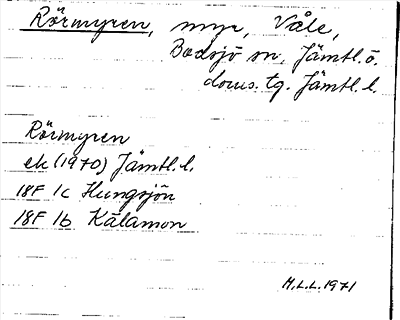 Rörmyren, myr, Våle,
Bodsjö sn, Jämtl. ö.
doms. tg. Jämtl. l.
Rörmyren
ek (1970) Jämtl. l.
18F 1c Hungsjön
18F 1b Kälamon
M.L.L. 1971